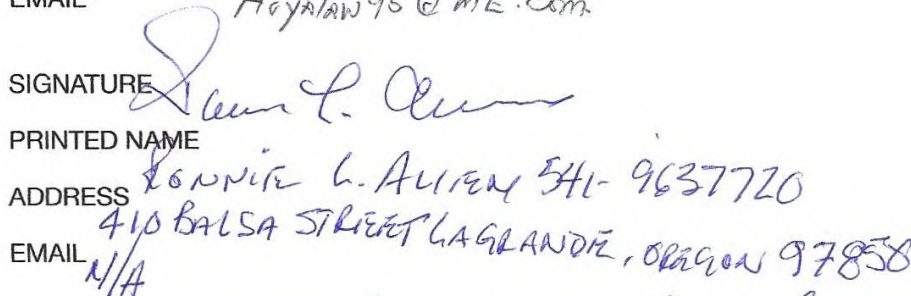 EMAIL
SIGNATURE
PRINTED NAME
RONNIE L. ALLEN 541-9637720
ADDRESS
410 BALSA STREET LAGRANDE, OREGON 97858
EMAIL
N/A